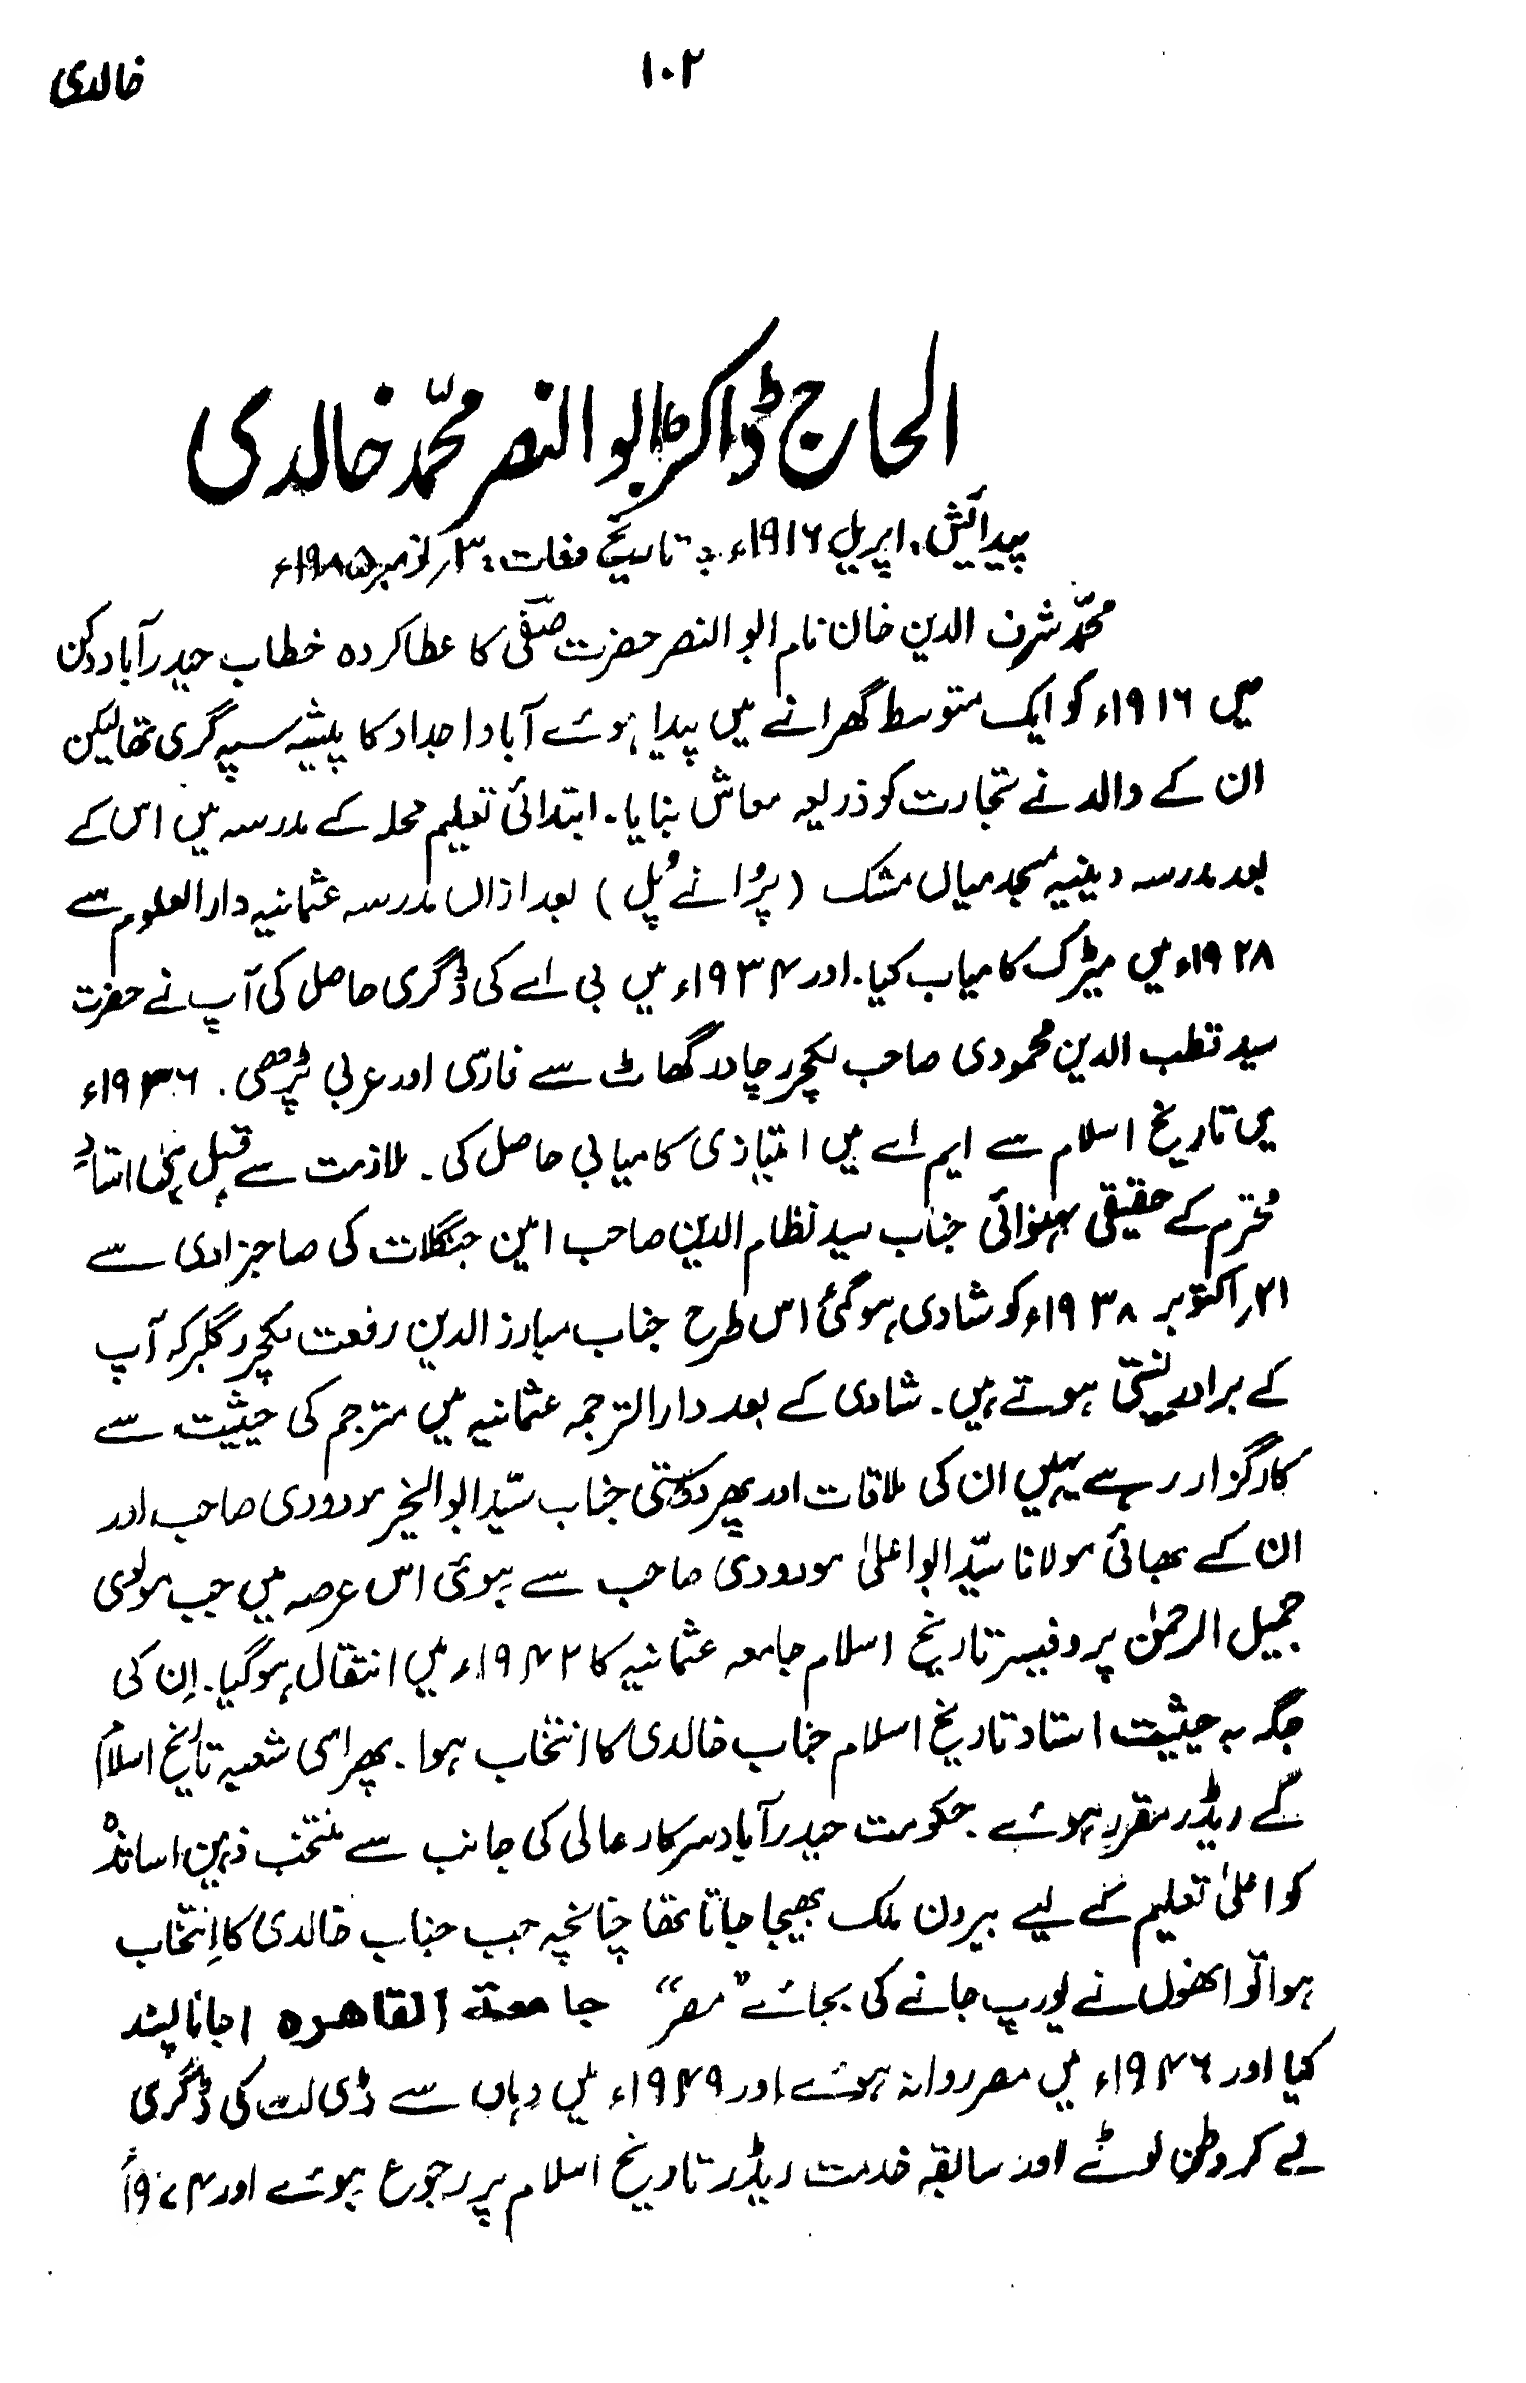 خالدی
۱۰۲
الحاج ڈاکٹر ابو النصر محمّد خالدی
پیدائش: اپریل ۱۹۱۶ء ؞ تاریخ وفات: ۳؍ نومبر ۱۹۸۵ء
محمّد شرف الدین خان نام ابو النصر حضرت صفیؔ کا عطا کردہ خطاب حیدرآباد دکن
میں ۱۹۱۶ء کو ایک متوسط گھرانے میں پیدا ہوئے آبا و اجداد کا پیشہ سپہ گری تھا لیکن
ان کے والد نے تجارت کو ذریعہ معاش بنایا۔ ابتدائی تعلیم محلہ کے مدرسہ میں اس کے
بعد مدرسہ دینیہ مسجد میاں مشک (پُرانے پُل) بعد ازاں مدرسہ عثمانیہ دارالعلوم سے
۱۹۲۸ء میں میٹرک کامیاب کیا۔ اور ۱۹۳۴ء میں بی اے کی ڈگری حاصل کی آپ نے حضرت
سید قطب الدین محمودی صاحب لکچرر چادر گھاٹ سے فارسی اور عربی پڑھی۔ ۱۹۳۶ء
میں تاریخ اسلام سے ایم اے میں امتیازی کامیابی حاصل کی۔ ملازمت سے قبل ہی استادِ
محترم کے حقیقی بہنوائی جناب سید نظام الدین صاحب امین جنگلات کی صاحبزادی سے
۲۱؍ اکتوبر ۱۹۳۸ء کو شادی ہو گئی اس طرح جناب مبارز الدین رفعت لکچرر گلبرکہ آپ
کے برادر نسبتی ہوتے ہیں۔ شادی کے بعد دارالترجمہ عثمانیہ میں مترجم کی حیثیت سے
کارگزار رہے یہیں ان کی ملاقات اور پھر دوستی جناب سیّد ابو الخیر مودودی صاحب اور
ان کے بھائی مولانا سیّد ابو اعلیٰ مودودی صاحب سے ہوئی اس عرصہ میں جب مولوی
جمیل الرحمٰن پروفیسر تاریخ اسلام جامعہ عثمانیہ کا ۱۹۴۲ء میں انتقال ہو گیا۔ اِن کی
جگہ بہ حیثیت استاد تاریخ اسلام جناب خالدی کا انتخاب ہوا۔ پھر اسی شعبہ تاریخ اسلام
کے ریڈر مقرر ہوئے۔ حکومت حیدرآباد سرکار عالی کی جانب سے منتخب ذہین اساتذہ
کو اعلیٰ تعلیم کے لیے بیرون ملک بھیجا جاتا تھا چنانچہ جب جناب خالدی کا اِنتخاب
ہوا تو انھوں نے یورپ جانے کی بجائے ”مصر“ جامعۃ القاھرہ ا جانا پسند
کیا اور ۱۹۴۶ء میں مصر روانہ ہوئے اور ۱۹۴۹ء میں وہاں سے ڈی لٹ کی ڈگری
لے کر وطن لوٹے اور سابقہ خدمت ریڈر تاریخ اسلام پر رجوع ہوئے اور ۱۹۷۴ء